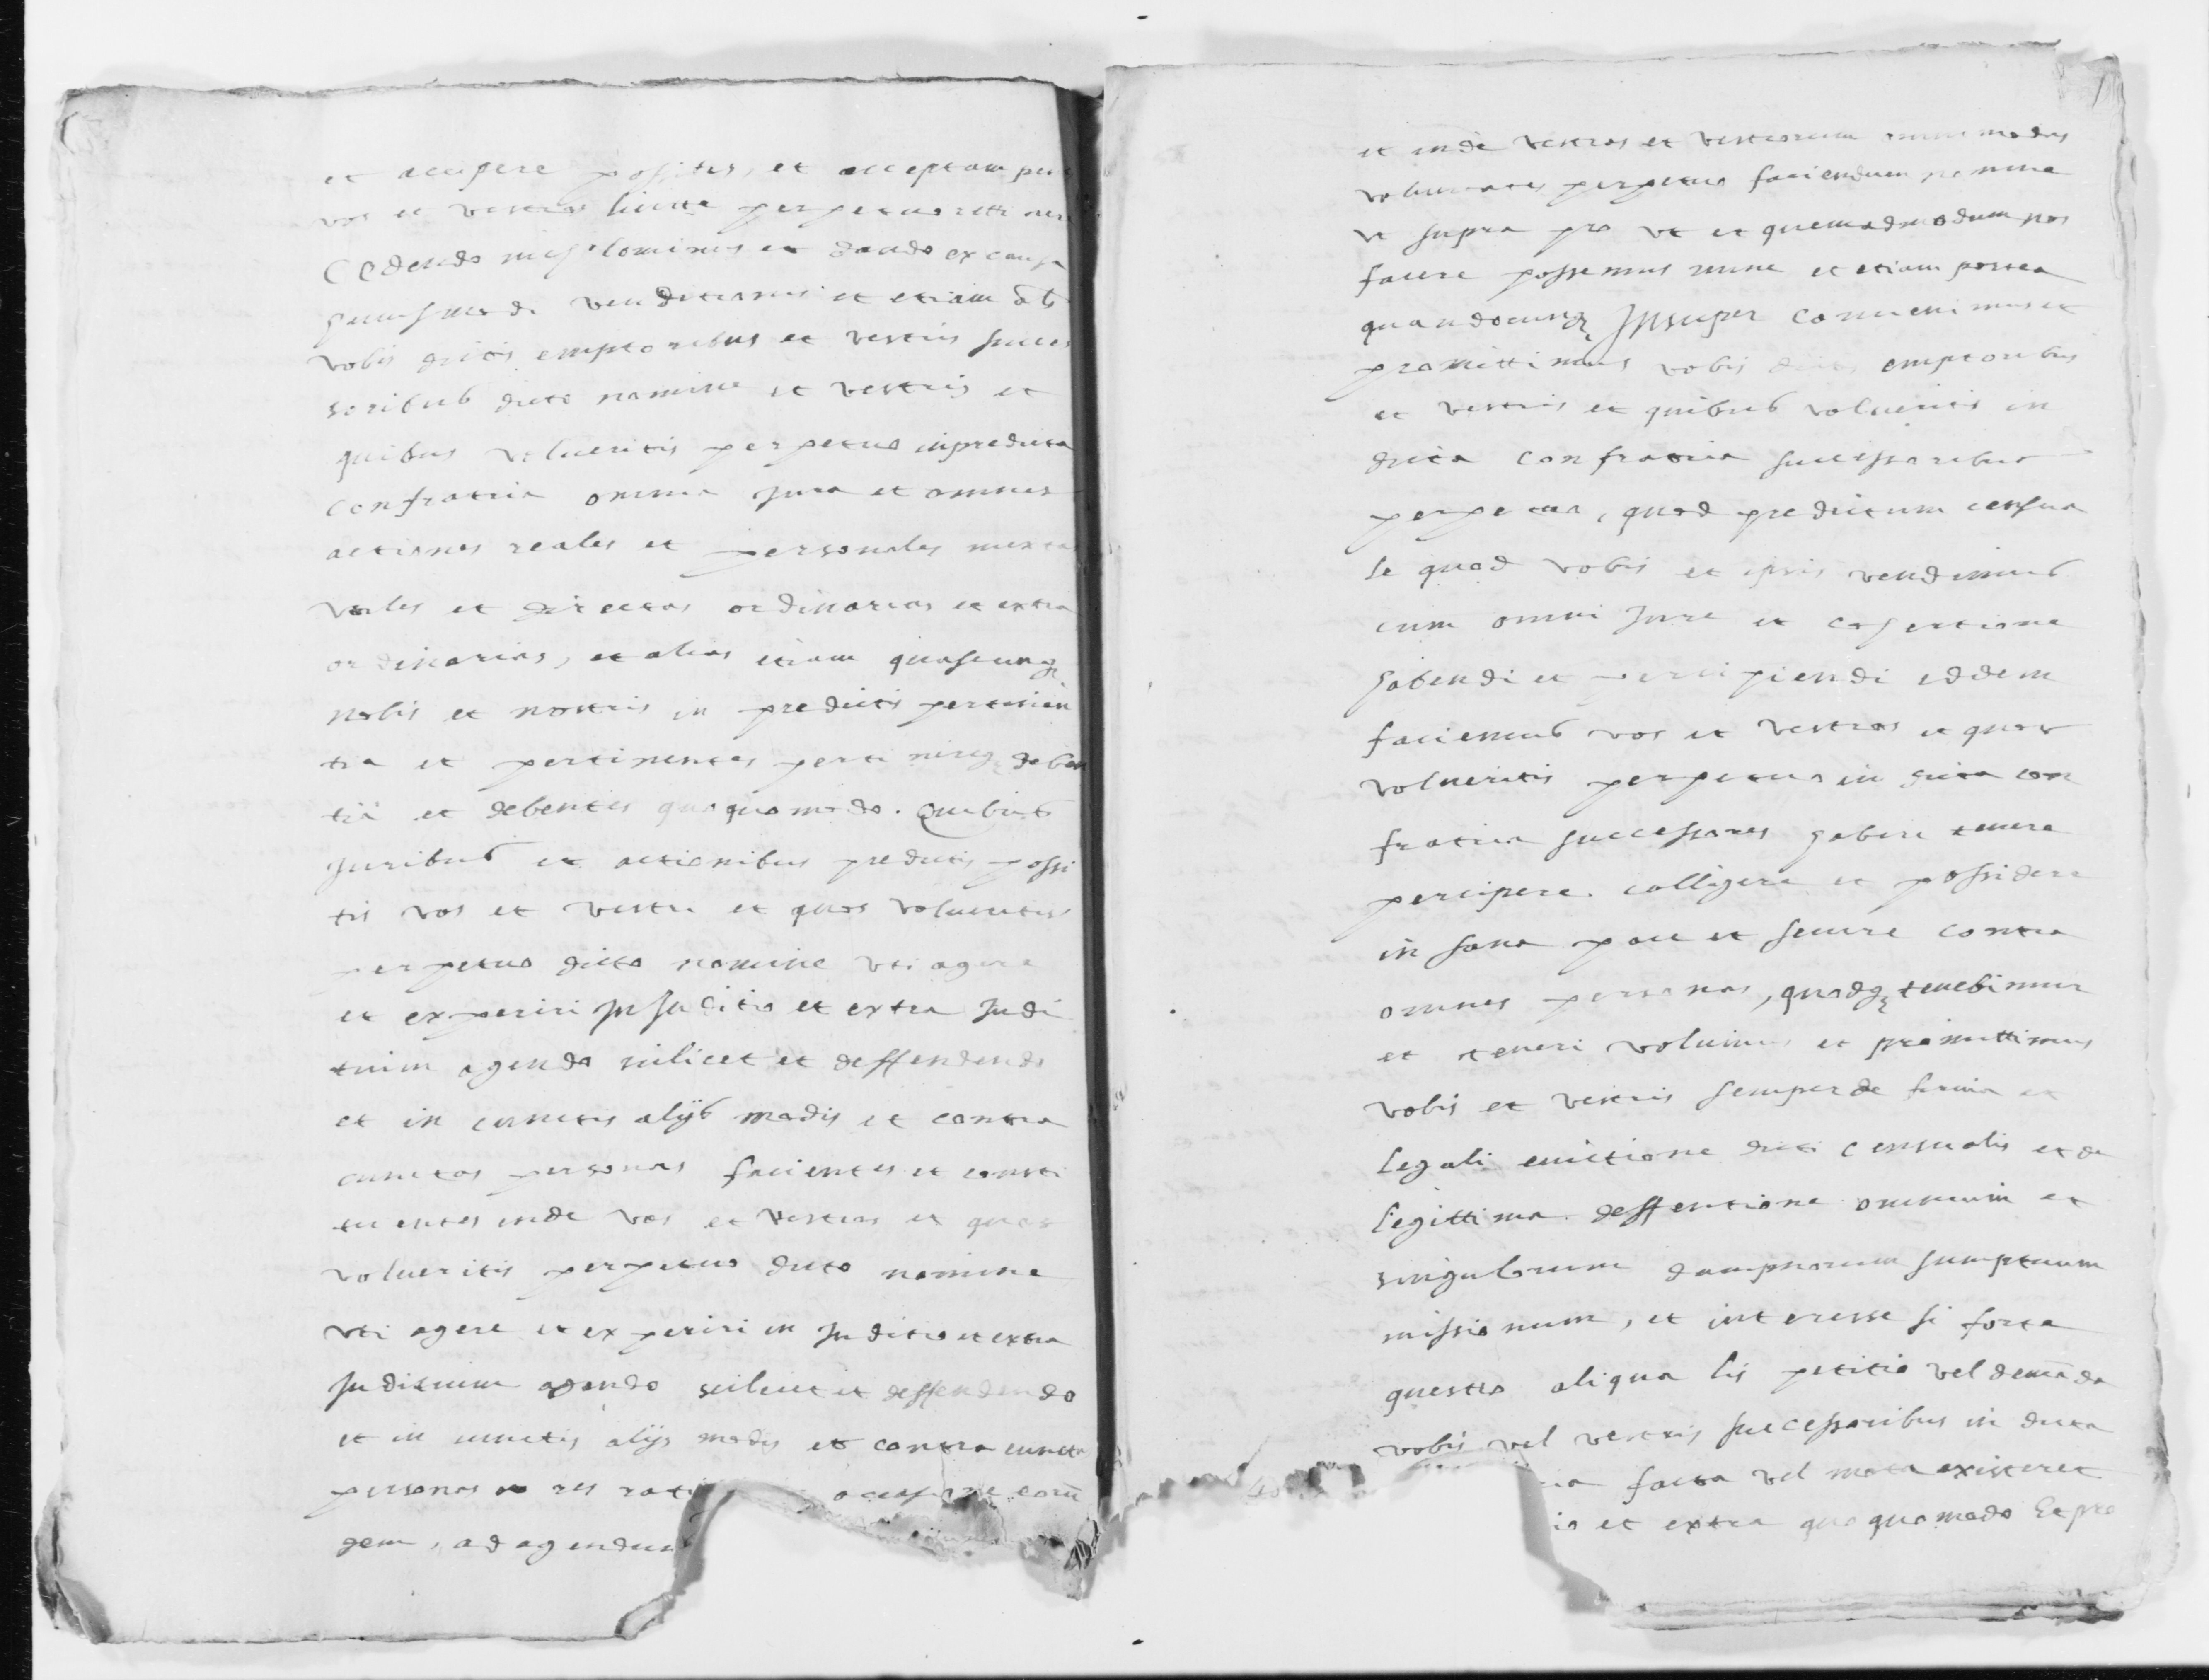 et accipere possitis, et acceptam pe
vos et vestros licite perpetuo retinere
Cedendo nichilominus et dando ex causa
huiusmodi venditionis et etiam ob
vobis dictis emptoribus et vestris succes
soribus dicto nomine et vestris et
quibus volueritis perpetuo in predicta
confratria omnia Jura et omnes
actiones reales et personales mixtas
utiles et directas ordinarias et extra
ordinarias, et alias etiam quascunq
nobis et nostris in predictis pertinen
tia et pertinentes pertinereq deben
tia et debentes quoquomodo. Quibus
Juribus et actionibus predictis possi
tis vos et vestri et quos volueritis
perpetuo dicto nomine uti agere
et experiri In Juditio et extra Judi
tium agendo scilicet et deffendendo
et in cunctis alijs modis et contra
cunctas personas facientes et consti
tuentes inde vos et vestros et quos
volueritis perpetuo dicto nomine
uti agere et experiri in Juditio et extra
Juditium agendo scilicet et deffendendo
et in cunctis alijs modis et contra cunctas
personas et res occasione eorū
dem, ad agendum
et inde vestras et vestrorum omnimodas
voluntates perpetuo faciendum nomine
ut supra pro ut et quemadmodum nos
facere possemus nunc et etiam postea
quandocunq Insuper convenimus et
promittimus vobis dictis emptoribus
et vestris et quibus volueritis in
dicta confratria successoribus
perpetuo, quod predictum censua
le quod vobis et ipsis vendimus
cum omni Jure et cohertione
habendi et percipiendi eddem
faciemus vos et vestros et quos
volueritis perpetuo in dicta con
fratria successores habere tenere
percipere. colligere et possidere
in sana pace et secure contra
omnes personas, quodq tenebimur
et teneri volumus et promittimus
vobis et vestris semper de firma et
legali evictione dicti censualis et de
legittima deffentione omnium et
singulorum dampnorum sumptuum
missionum, et interesse si forte
questio aliqua lis petitio vel demāda
vobis vel vestris successoribus in dicta
facta vel mota existeret
et extra quoquomodo Et pro